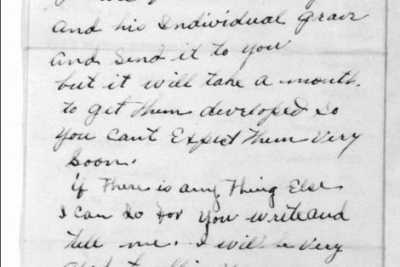 and his Individual Grave
And Send it to you
but it will take a month.
to get them developed so
you cant Expect them Very
Soon.
if There is any Thing Else
I can do for you write and
tell me. I will be very